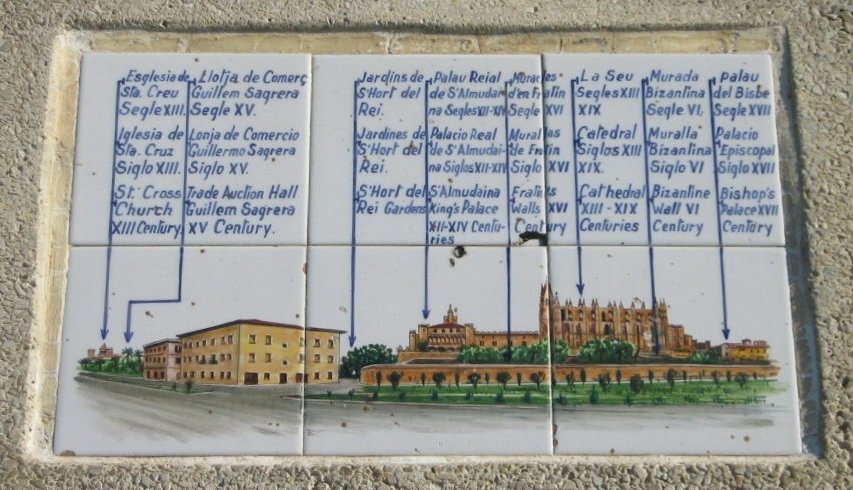 Esglesia de
Sta. Creu
Segle XIII.
Iglesia de
Sta. Cruz
Siglo XIII.
St. Cross
Church
XIII Century.
Llotja de Comerç
Guillem Sagrera
Segle XV.
Lonja de Comercio
Guillermo Sagrera
Siglo XV.
Trade Auction Hall
Guillem Sagrera
XV Century.
Jardins de
S'Hort del
Rei.
Jardines de
S'Hort del
Rei.
S'Hort del
Rei Gardens
Palau Reial
de S'Almudai-
na Segles XII-XIV
Palacio Real
de S'Almudai-
na Siglos XII-XIV
S'Almudaina
King's Palace
XII-XIV Centu-
ries
Segle XVI
Siglo XVI
Walls XVI
Century
La Seu
Segles XIII
XIX
Catedral
Siglos XIII
XIX.
Cathedral
XIII - XIX
Centuries
Murada
Bizantina
Segle VI.
Muralla
Bizantina
Siglo VI
Bizantine
Wall VI
Century
Palau
del Bisbe
Segle XVII
Palacio
Episcopal
Siglo XVII
Bishop's
Palace XVII
Century